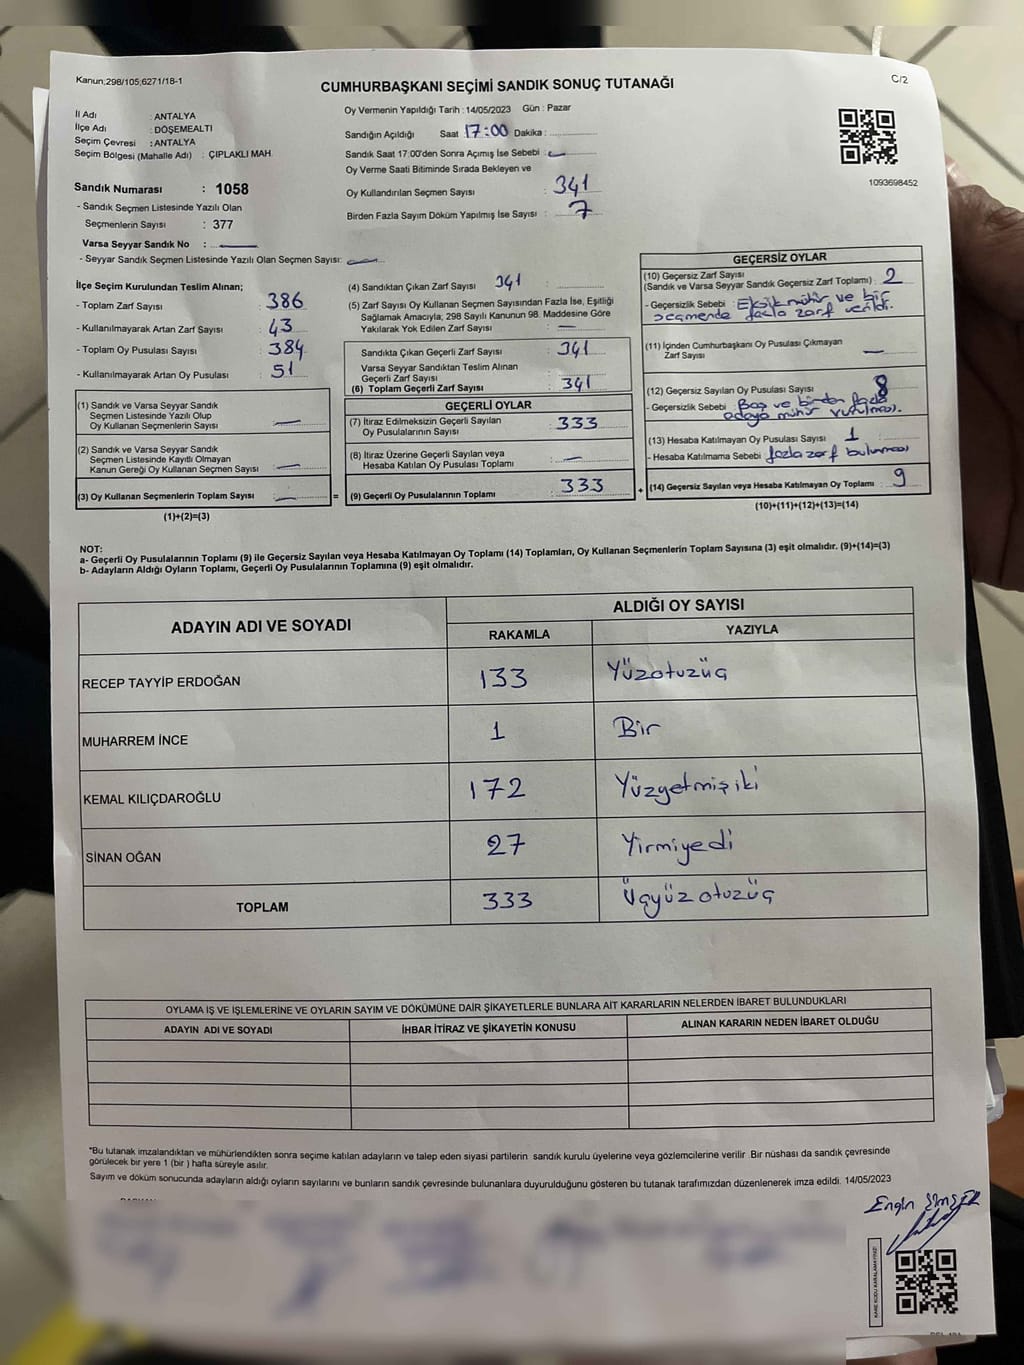 Kanun;298/105;6271/18-1
C/2
CUMHURBAŞKANI SEÇİMİ SANDIK SONUÇ TUTANAĞI
İl Adı : ANTALYA
İlçe Adı : DÖŞEMEALTI
Seçim Çevresi : ANTALYA
Seçim Bölgesi (Mahalle Adı) : ÇIPLAKLI MAH.
Sandık Numarası : 1058
- Sandık Seçmen Listesinde Yazılı Olan
Seçmenlerin Sayısı : 377
Varsa Seyyar Sandık No :
- Seyyar Sandık Seçmen Listesinde Yazılı Olan Seçmen Sayısı:
Oy Vermenin Yapıldığı Tarih : 14/05/2023 Gün : Pazar
Sandığın Açıldığı Saat 17:00 Dakika :
Sandık Saat 17:00'den Sonra Açımış İse Sebebi :
Oy Verme Saati Bitiminde Sırada Bekleyen ve
Oy Kullandırılan Seçmen Sayısı : 341
Birden Fazla Sayım Döküm Yapılmış İse Sayısı : 7
1093698452
İlçe Seçim Kurulundan Teslim Alınan;
- Toplam Zarf Sayısı : 386
- Kullanılmayarak Artan Zarf Sayısı : 43
- Toplam Oy Pusulası Sayısı : 384
- Kullanılmayarak Artan Oy Pusulası : 51
(1) Sandık ve Varsa Seyyar Sandık
Seçmen Listesinde Yazılı Olup
Oy Kullanan Seçmenlerin Sayısı :
(2) Sandık ve Varsa Seyyar Sandık
Seçmen Listesinde Kayıtlı Olmayan
Kanun Gereği Oy Kullanan Seçmen Sayısı :
(3) Oy Kullanan Seçmenlerin Toplam Sayısı :
(1)+(2)=(3)
=
(4) Sandıktan Çıkan Zarf Sayısı 341 :
(5) Zarf Sayısı Oy Kullanan Seçmen Sayısından Fazla İse, Eşitliği
Sağlamak Amacıyla; 298 Sayılı Kanunun 98. Maddesine Göre
Yakılarak Yok Edilen Zarf Sayısı :
Sandıkta Çıkan Geçerli Zarf Sayısı : 341
Varsa Seyyar Sandıktan Teslim Alınan
Geçerli Zarf Sayısı :
(6) Toplam Geçerli Zarf Sayısı : 341
GEÇERLİ OYLAR
(7) İtiraz Edilmeksizin Geçerli Sayılan
Oy Pusulalarının Sayısı : 333
(8) İtiraz Üzerine Geçerli Sayılan veya
Hesaba Katılan Oy Pusulası Toplamı :
(9) Geçerli Oy Pusulalarının Toplamı : 333
+
GEÇERSİZ OYLAR
(10) Geçersiz Zarf Sayısı
(Sandık ve Varsa Seyyar Sandık Geçersiz Zarf Toplamı) : 2
- Geçersizlik Sebebi : Eksik mühür ve bir
seçmende fazla zarf verildi.
(11) İçinden Cumhurbaşkanı Oy Pusulası Çıkmayan
Zarf Sayısı :
(12) Geçersiz Sayılan Oy Pusulası Sayısı : 8
- Geçersizlik Sebebi : Boş ve birden fazla
adaya mühür vurulması.
(13) Hesaba Katılmayan Oy Pusulası Sayısı : 1
- Hesaba Katılmama Sebebi : fazla zarf bulunması
(14) Geçersiz Sayılan veya Hesaba Katılmayan Oy Toplamı : 9
(10)+(11)+(12)+(13)=(14)
NOT:
a- Geçerli Oy Pusulalarının Toplamı (9) ile Geçersiz Sayılan veya Hesaba Katılmayan Oy Toplamı (14) Toplamları, Oy Kullanan Seçmenlerin Toplam Sayısına (3) eşit olmalıdır. (9)+(14)=(3)
b- Adayların Aldığı Oyların Toplamı, Geçerli Oy Pusulalarının Toplamına (9) eşit olmalıdır.
ADAYIN ADI VE SOYADI
ALDIĞI OY SAYISI
RAKAMLA YAZIYLA
RECEP TAYYİP ERDOĞAN 133 Yüzotuzüç
MUHARREM İNCE 1 Bir
KEMAL KILIÇDAROĞLU 172 Yüzyetmişiki
SİNAN OĞAN 27 Yirmiyedi
TOPLAM 333 Üçyüzotuzüç
OYLAMA İŞ VE İŞLEMLERİNE VE OYLARIN SAYIM VE DÖKÜMÜNE DAİR ŞİKAYETLERLE BUNLARA AİT KARARLARIN NELERDEN İBARET BULUNDUKLARI
ADAYIN ADI VE SOYADI İHBAR İTİRAZ VE ŞİKAYETİN KONUSU ALINAN KARARIN NEDEN İBARET OLDUĞU
"Bu tutanak imzalandıktan ve mühürlendikten sonra seçime katılan adayların ve talep eden siyasi partilerin sandık kurulu üyelerine veya gözlemcilerine verilir Bir nüshası da sandık çevresinde
görülecek bir yere 1 (bir ) hafta süreyle asılır.
Sayım ve döküm sonucunda adayların aldığı oyların sayılarını ve bunların sandık çevresinde bulunanlara duyurulduğunu gösteren bu tutanak tarafımızdan düzenlenerek imza edildi. 14/05/2023
Engin ŞİMŞEK
KARE KODU KARALAMAYINIZ!